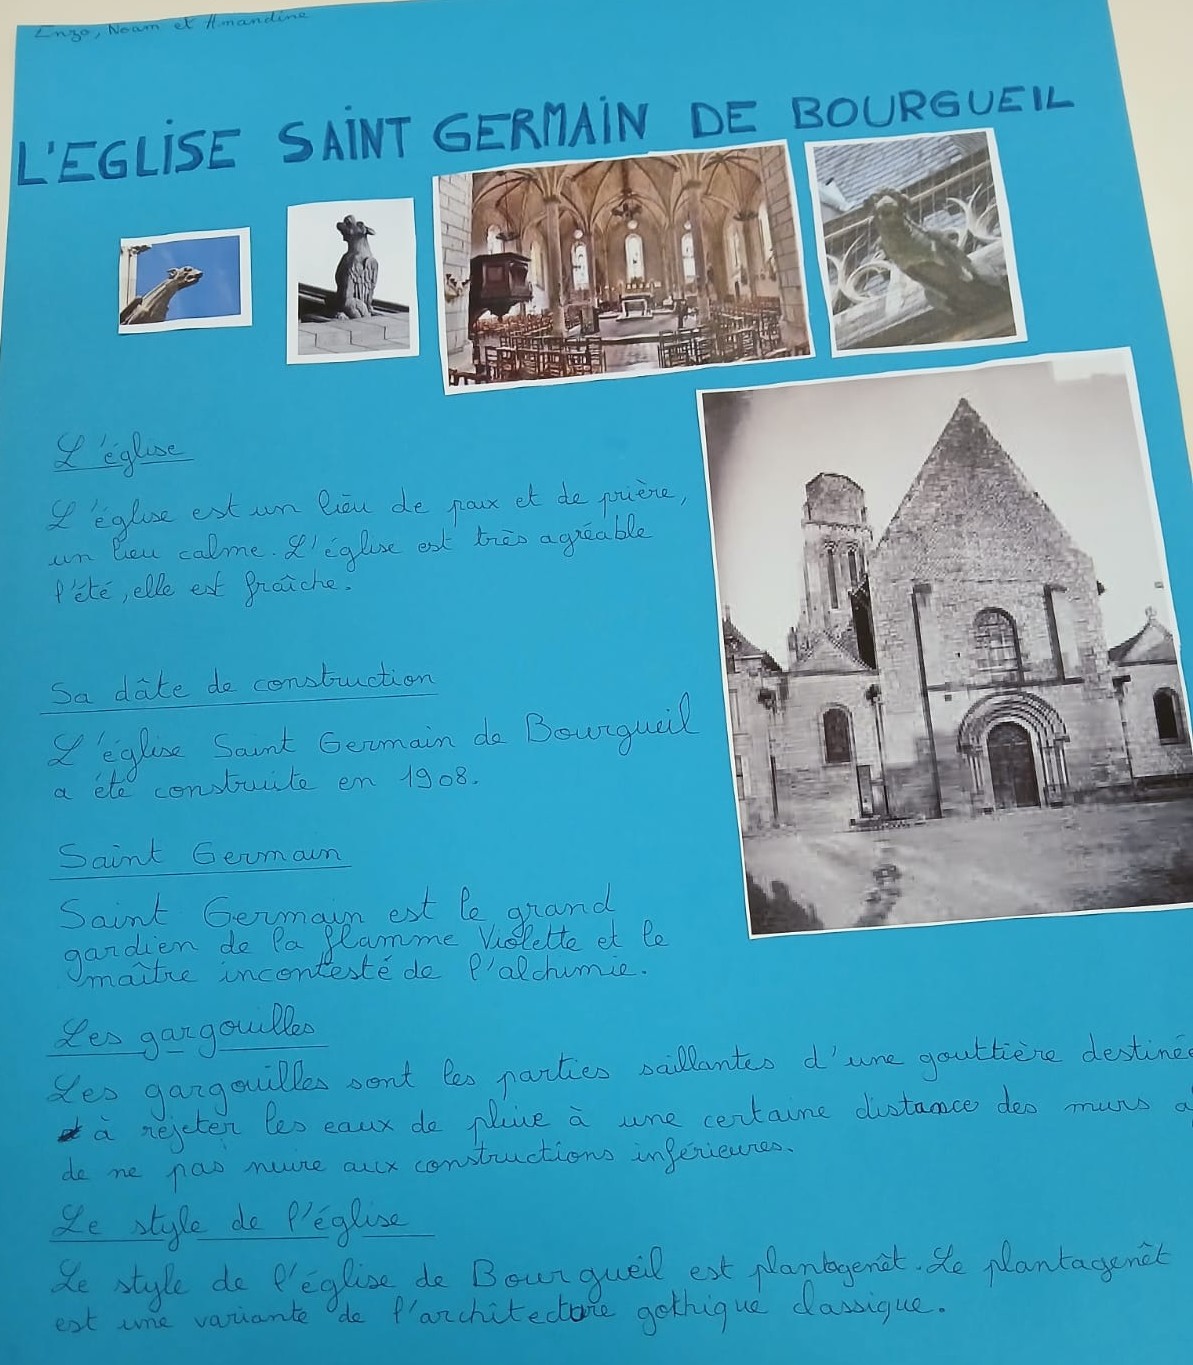 Enzo, Noam et Amandine
L'EGLISE SAINT GERMAIN DE BOURGUEIL
L'église
L'église est un lieu de paix et de prière,
un lieu calme. L'église est très agréable
l'été, elle est fraîche.
Sa dâte de construction
L'église Saint Germain de Bourgueil
a été construite en 1908.
Saint Germain
Saint Germain est le grand
gardien de la flamme Violette et le
maître incontesté de l'alchimie.
Les gargouilles
Les gargouilles sont les parties saillantes d'une gouttière destinée
à rejeter les eaux de pluie à une certaine distance des murs a
de ne pas nuire aux constructions inférieures.
Le style de l'église
Le style de l'église de Bourgueil est plantagenêt. Le plantagenêt
est une variante de l'architecture gothique classique.